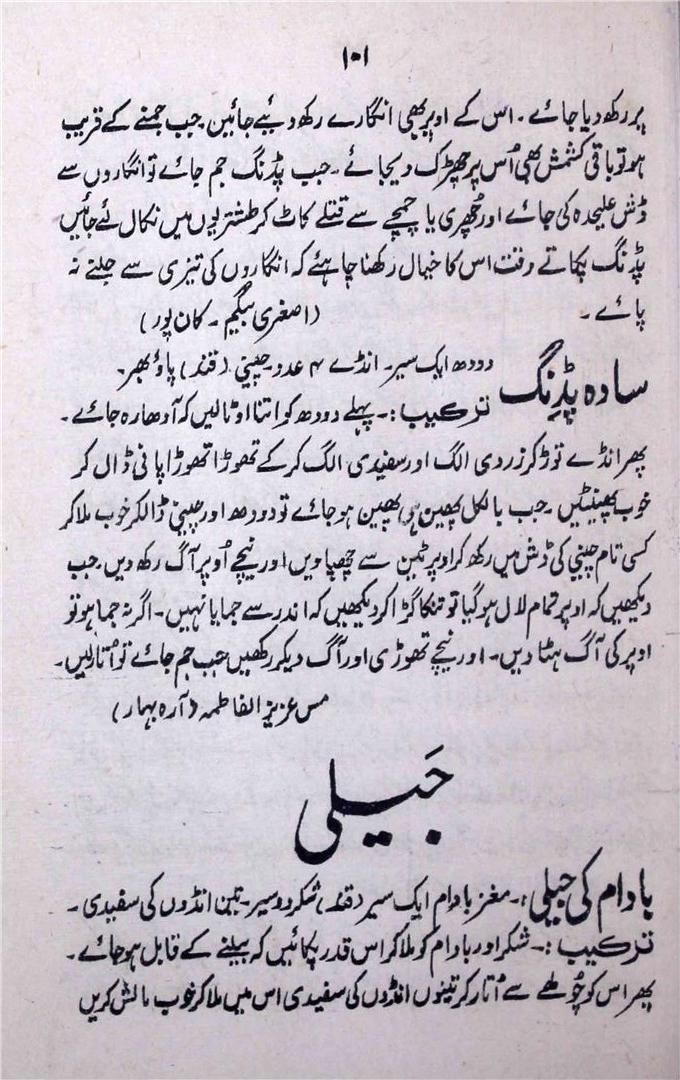 ۱۰۱
پر رکھ دیا جائے۔ اس کے اوپر بھی انگارے رکھ دئیے جائیں۔ جب جمنے کے قریب
ہو تو باقی کشمش بھی اُس پر چھڑک دیجائے۔ جب پڈنگ جم جائے تو انگاروں سے
ڈش علیحدہ کی جائے اور چھری یا چمچے سے قتلے کاٹ کر طشتریوں میں نکال لئے جائیں
پڈنگ پکاتے وقت اس کا خیال رکھنا چاہئے کہ انگاروں کی تیزی سے جلنے نہ
پائے۔ (اصغری بیگم۔ کان پور)
سادہ پڈنگ دودھ ایک سیر۔ انڈے ۴ عدد۔ چینی (قند) پاؤ بھر۔
ترکیب:۔ پہلے دودھ کو اتنا اوٹالیں کہ آدھا رہ جائے۔
پھر انڈے توڑ کر زردی الگ اور سفیدی الگ کر کے تھوڑا تھوڑا پانی ڈال کر
خوب پھینٹیں۔ جب بالکل پھین ہی پھین ہو جائے تو دودھ اور چینی ڈالکر خوب ملا کر
کسی تام چینی کی ڈش میں رکھ کر اوپر ٹین سے چھپا ویں اور نیچے اُوپر آگ رکھ دیں۔ جب
دیکھیں کہ اوپر تمام لال ہو گیا تو تنکا گڑا کر دیکھیں کہ اندر سے جما یا نہیں۔ اگر نہ جما ہو تو
اوپر کی آگ ہٹا دیں۔ اور نیچے تھوڑی اور آگ دیکر رکھیں جب جم جائے تو اُتار لیں۔
مس عزیز الفاطمہ (آرہ بہار)
جَیلی
بادام کی جیلی:۔ مغز بادام ایک سیر (قند) شکر دو سیر۔ تین انڈوں کی سفیدی۔
ترکیب:۔ شکر اور بادام کو ملا کر اس قدر پکائیں کہ بیلنے کے قابل ہو جائے۔
پھر اس کو چُولھے سے اُتار کر تینوں انڈوں کی سفیدی اس میں ملا کر خوب مالش کریں